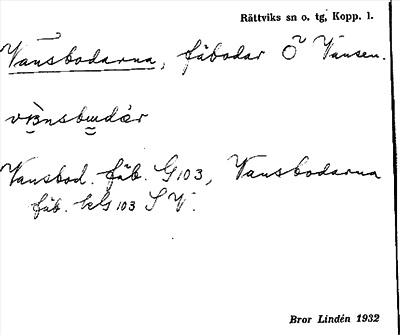 Rättviks sn o. tg, Kopp. l.
Vansbodarna, fäbodar Ö Vansen.
Vansbod. fäb. G 103, Vansbodarna
fäb. 103 S V.
Bror Lindén 1932